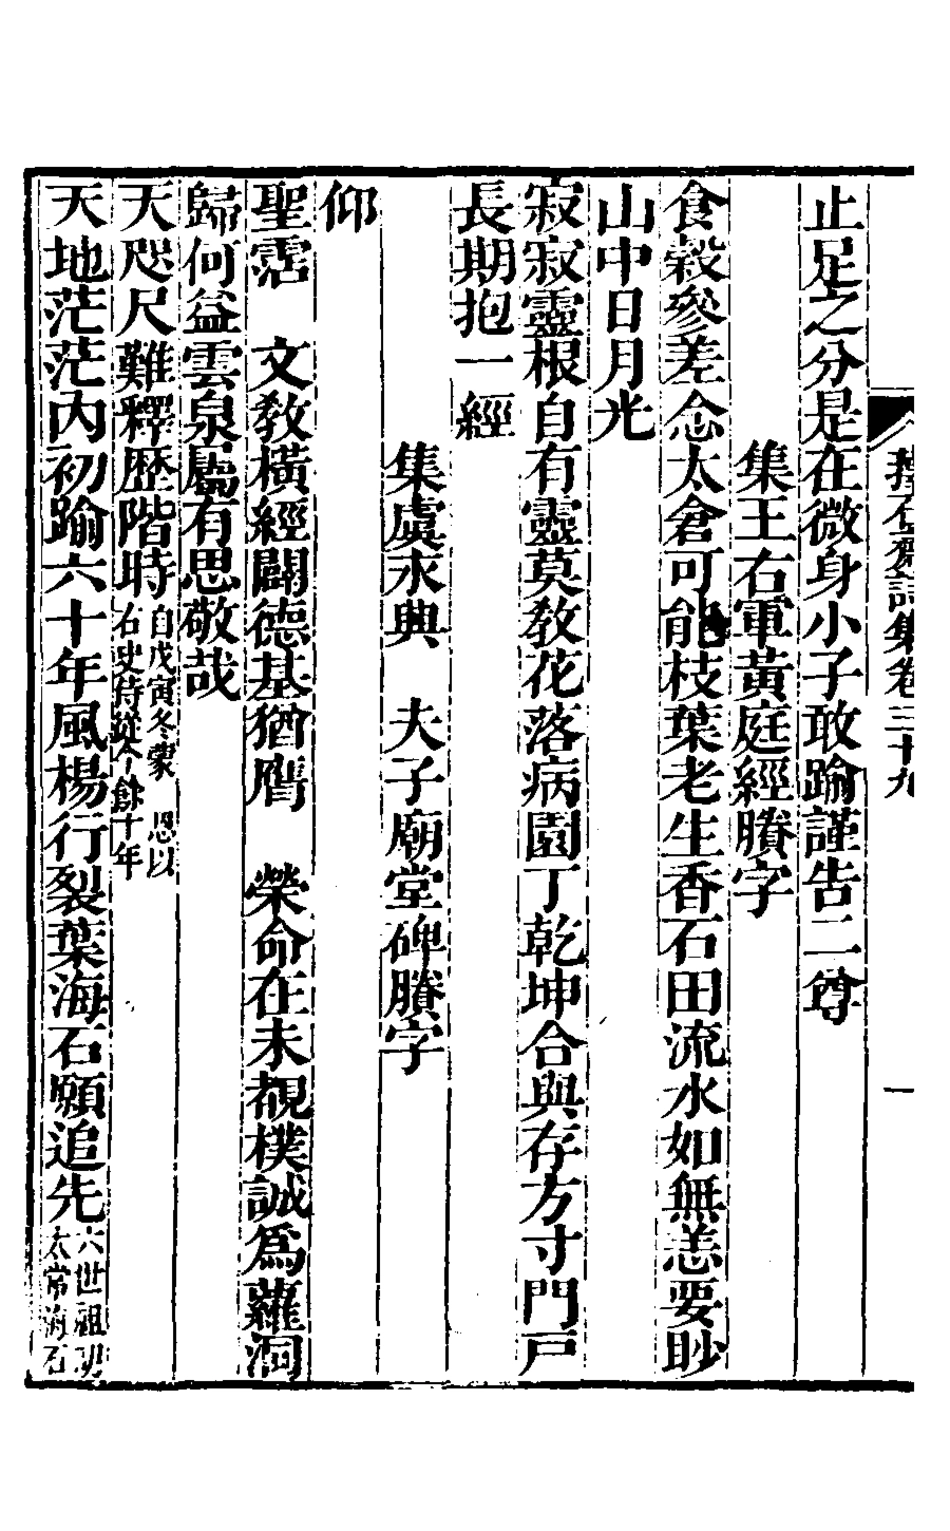 蘀石齋詩集卷三十九
一
止足之分是在微身小子敢踰謹告二尊
集王右軍黃庭經賸字
食穀參差念太倉可能枝葉老生香石田流水如無恙要眇
山中日月光
寂寂靈根自有靈莫教花落病園丁乾坤合與存方寸門戸
長期抱一經
集虞永興 夫子廟堂碑賸字
仰
聖霑 文教橫經闢德基猶膺 榮命在未覩樸誠爲蘿洞
歸何益雲泉屬有思敬哉
天咫尺難釋歴階時自戊寅冬蒙 恩以
右史侍從今餘十年
天地茫茫内初踰六十年風楊行裂葉海石願追先六世祖明
太常海石